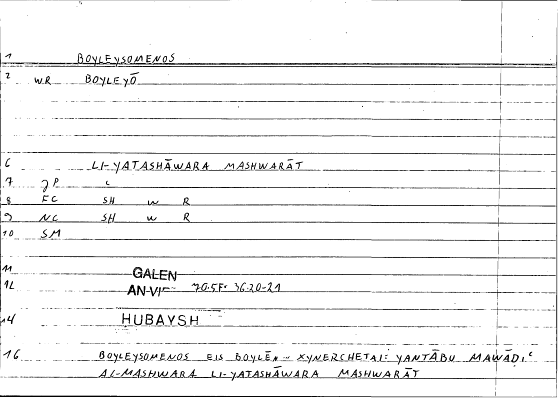 1 BOYLEYSOMENOS
2 WR BOYLEYŌ
6 LI-YATASHĀWARA MASHWARĀT
7 JP C
8 FC SH W R
9 NC SH W R
10 SM
11 GALEN
12 AN-VI 70.5F. 36.20-21
14 HUBAYSH
16 BOYLEYSOMENOS EIS BOYLĒN - XYNERCHETAI: YANTĀBU MAWĀḌIʿ
AL-MASHWARA LI-YATASHĀWARA MASHWARĀT